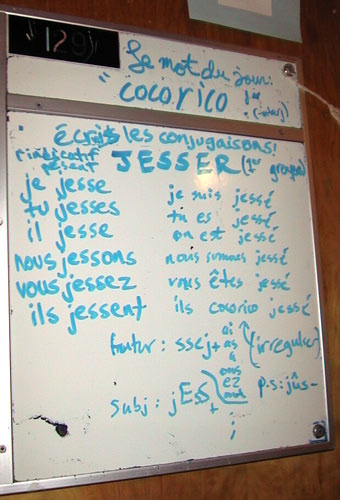 129
Le mot du jour:
"cocorico
(interj)
Écrits les conjugaisons!
l'indicatif présent
JESSER (1er groupe)
je jesse je suis jessé
tu jesses tu es jessé
il jesse on est jessé
nous jessons nous sommes jessé
vous jessez vous êtes jessé
ils jessent ils cocorico jessé
futur: ssej+ ai as a ons ez ont (irregulser)
subj: jEss + P.S: jûs-
;